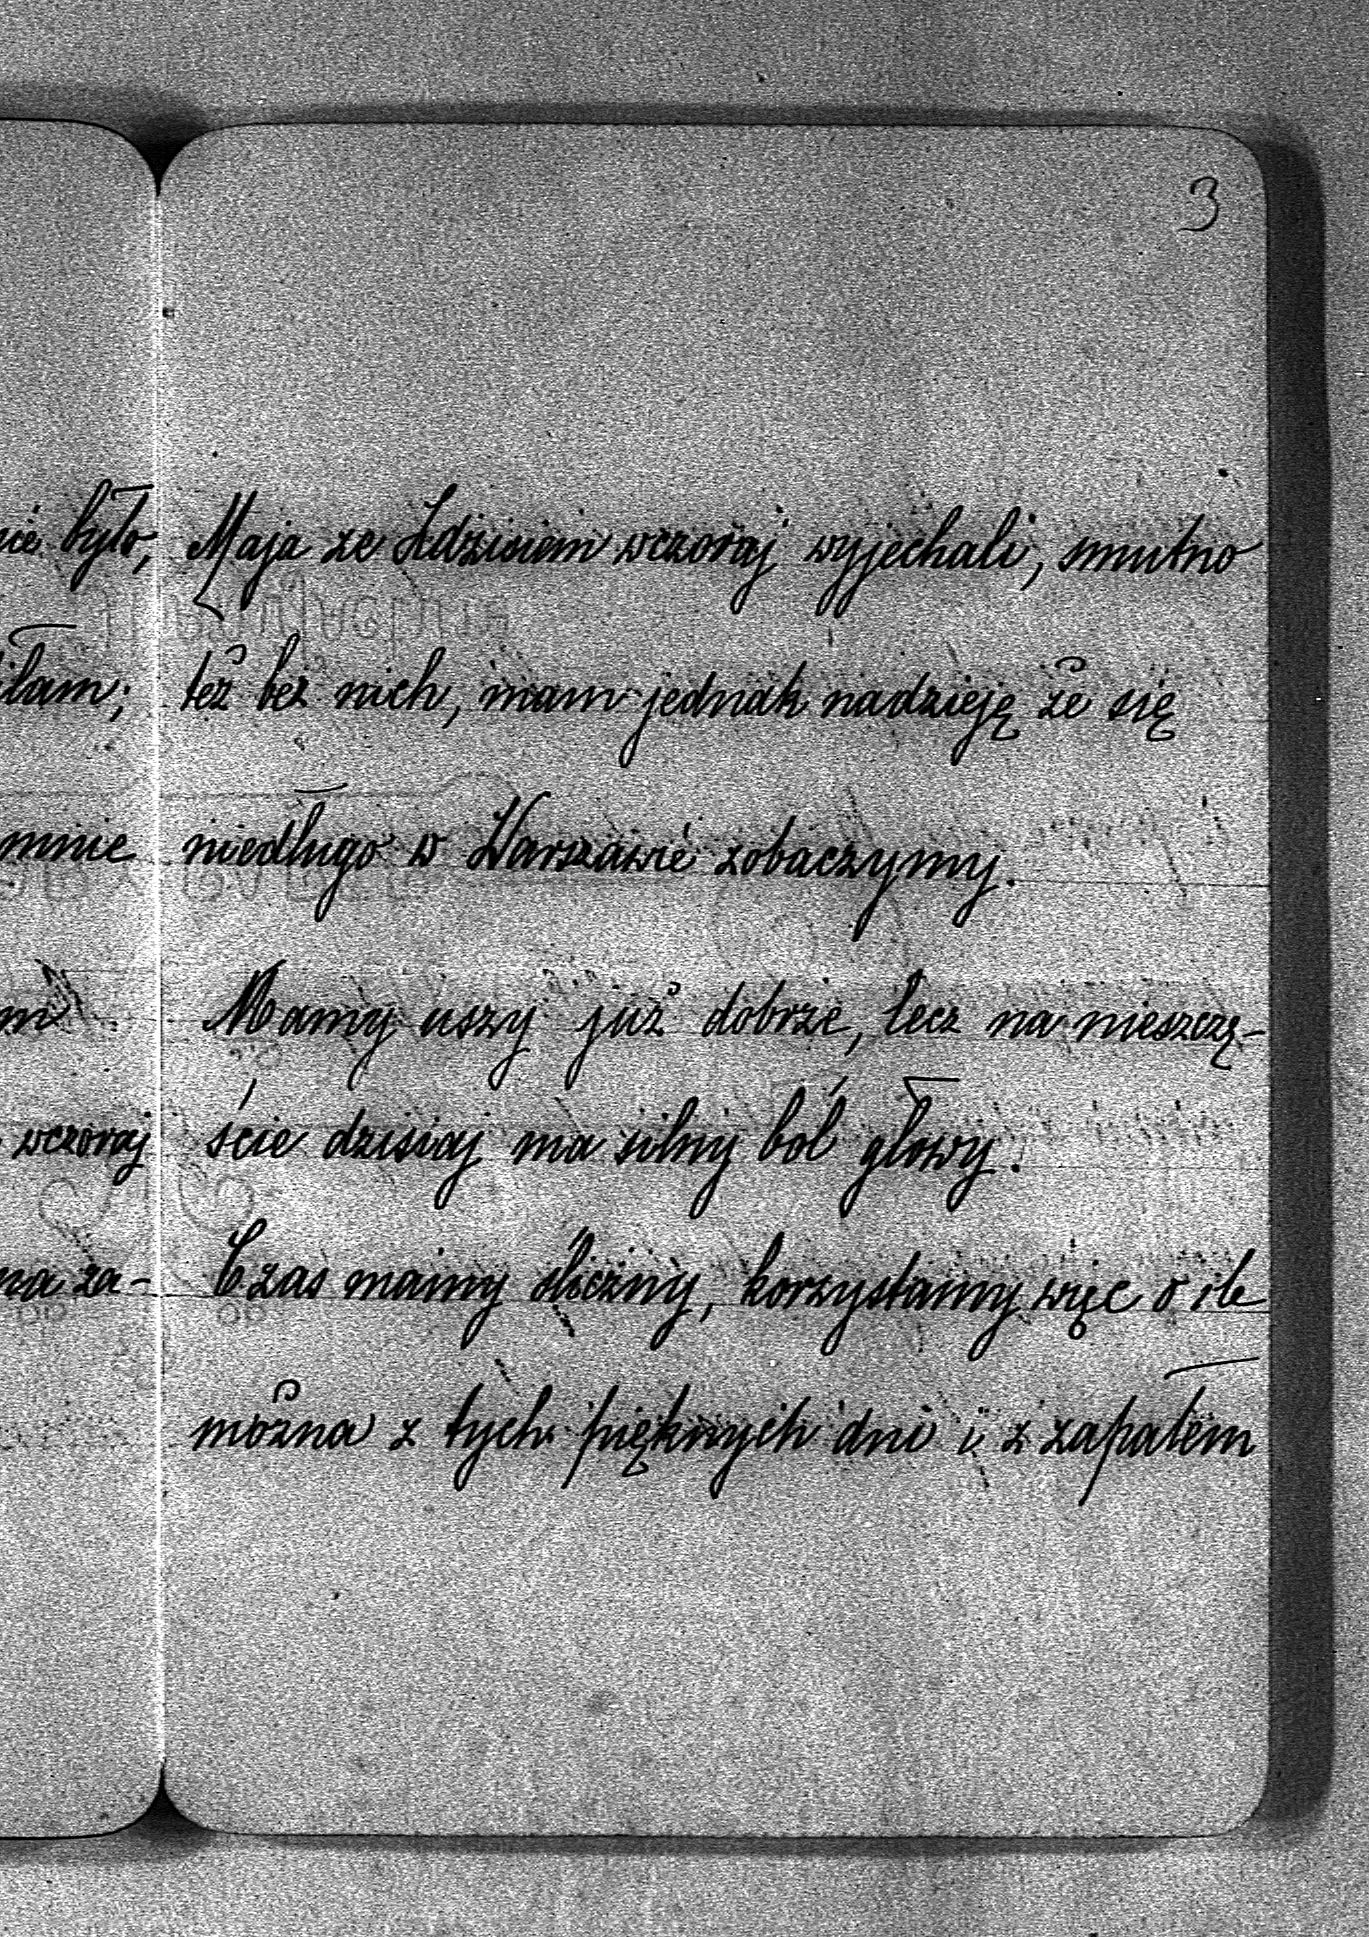 3
Maja ze Zdzisiem wczoraj wyjechali, smutno
też bez nich, mam jednak nadzieję że się
niedługo w Warszawie zobaczymy.
Mamy uszy już dobrze, lecz na nieszczę-
ście dzisiaj ma silny ból głowy.
Czas mamy śliczny, korzystamy więc o ile
można z tych pięknych dni i z zapałem
było,
mnie
wczoraj
na za-